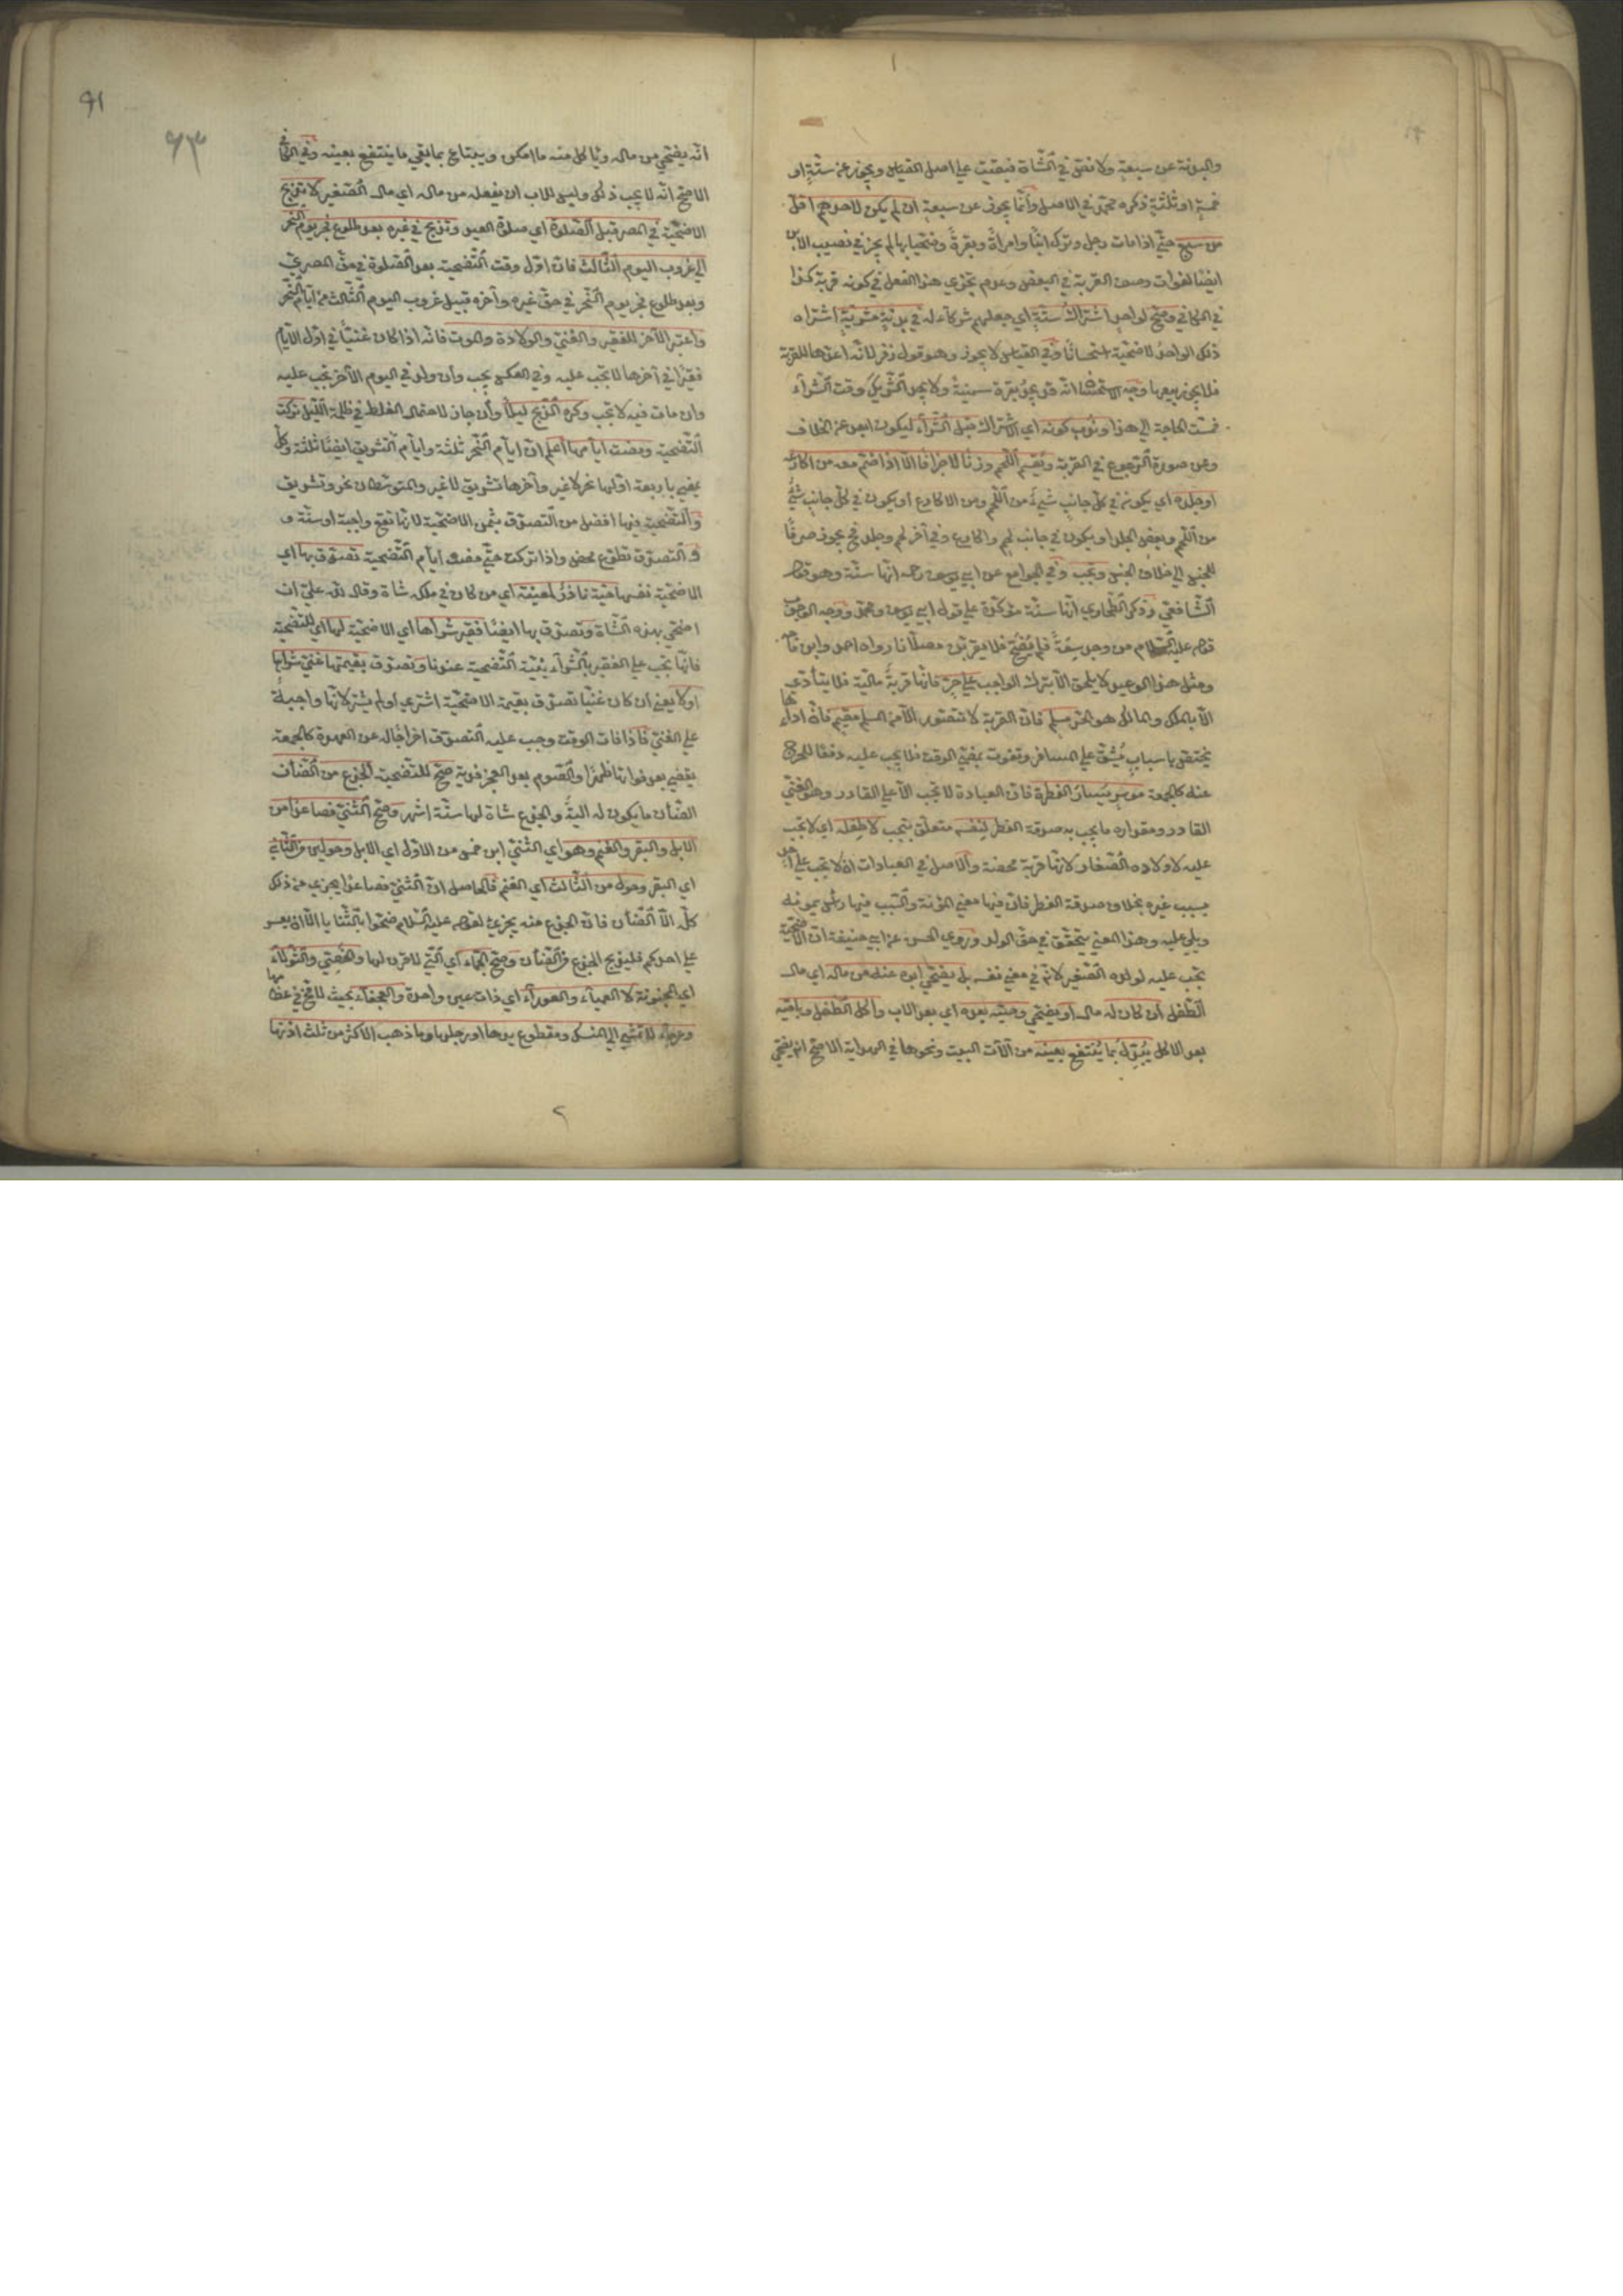 والبدنة عن سبعة ولا نص في الشاة فبقيت على اصل القياس ويجوز عن ستة او
خمسة او ثلثة ذكره محمد في الاصل وانما يجوز عن سبعة ان لم يكن لاحدهم اقل
من سبع حتى اذا مات رجل وترك ابنا وامراة وبقرة وضحيا بها لم يجز في نصيب الابن
ايضا لفوات وصف القربة في البعض وعدم تجزي هذا الفعل في كونه قربة كذا
في الكافي وصح لواحد اشتراك ستة اي جعلهم شركاء له في بدنة مشرية اشتراه
ذلك الواحد لاضحية استحسانا وفي القياس لا يجوز وهو قول زفر لانه اعدها للقربة
فلا يجوز بيعها وجه انه قد يجد بقرة سمينة ولا يجد الشريك وقت الشراء
فمست الحاجة الى هذا وندب كونه اي الاشتراك قبل الشراء ليكون ابعد عن الخلاف
وعن صورة الرجوع في القربة ويقسم اللحم وزنا لا جزافا الا اذا ضم معه من اكارعه
او جلده اي يكون في كل جانب شيء من اللحم ومن الاكارع او يكون في كل جانب شيء
من اللحم وبعض الجلد او يكون في جانب لحم واكارع وفي آخر لحم وجلد فح يجوز صرفا
للجنس الى خلاف الجنس وتجب وفي الجوامع عن ابي يوسف رحمه انها سنة وهو قول
الشافعي وذكر الطحاوي انها سنة مؤكدة على قول ابي يوسف ومحمد ووجه الوجوب
قوله عليه السلام من وجد سعة فلم يضح فلا يقربن مصلانا رواه احمد وابن ماجه
ومثل هذا الوعيد لا يلحق الا بترك الواجب على حر فانها قربة مالية فلا يتأدى
الا بالملك والمالك هو الحر مسلم فان القربة لا تتصور الا من المسلم مقيم فان اداءها
يختص باسباب يشق على المسافر وتفوت بمضي الوقت فلا يجب عليه دفعا للحرج
عنه كالجمعة موسر يسار الفطرة فان العبادة لا تجب الا على القادر وهو الغني
القادر ومقداره ما يجب به صدقة الفطر لنفسه متعلق بتجب لا طفله اي لا تجب
عليه لاولاده الصغار لانها قربة محضة والاصل في العبادات ان لا يجب على احد
بسبب غيره بخلاف صدقة الفطر فان فيها معنى المؤنة والسبب فيها رأس يمونه
ويلي عليه وهذا المعنى يتحقق في حق الولد وروى الحسن عن ابي حنيفة ان الاضحية
تجب عليه لولده الصغير لانه في معنى نفسه بل يضحي ابوه عنه من ماله اي مال
الطفل ان كان له مال او يضحي وصيه بعده اي بعد الاب واكل الطفل وباقيه
بعد الاكل يبدل بما ينتفع بعينه من آلات البيت ونحوها في الهداية الاصح انه يضحي
انه يضحي من ماله ويأكل منه ما امكن ويبتاع بما بقي ما ينتفع بعينه وفي الكافي
الاصح انه لا يجب ذلك وليس للاب ان يفعله من ماله اي مال الصغير لا تذبح
الاضحية في المصر قبل الصلوة اي صلوة العيد وتذبح في غيره بعد طلوع فجر يوم النحر
الى غروب اليوم الثالث فان اول وقت التضحية بعد الصلوة في حق المصري
وبعد طلوع فجر يوم النحر في حق غيره وآخره قبيل غروب اليوم الثالث من ايام النحر
واعتبر الآخر للفقير والغني والولادة والموت فانه اذا كان غنيا في اول الايام
فقيرا في آخرها لا تجب عليه وفي العكس يجب وان ولد في اليوم الآخر تجب عليه
وان مات فيه لا تجب وكره الذبح ليلا وان جاز لاحتمال الغلط في ظلمة الليل تركت
التضحية ومضت ايامها اعلم ان ايام النحر ثلثة وايام التشريق ايضا ثلثة وكل
يمضي باربعة اولها نحر لا غير وآخرها تشريق لا غير والمتوسطان نحر وتشريق
والتضحية فيها افضل من التصدق بثمن الاضحية لانها تقع واجبة او سنة و
والتصدق تطوع محض واذا تركت حتى مضت ايام التضحية تصدق بها اي
الاضحية نفسها حية ناذر لمعينة اي من كان في ملكه شاة وقال لله علي ان
اضحي بهذه الشاة وتصدق بها ايضا فقير شراها اي الاضحية لها اي للتضحية
فانها تجب على الفقير بالشراء بنية التضحية عندنا وتصدق بقيمتها غني شراها
او لا يعني ان كان غنيا تصدق بقيمة الاضحية اشترى او لم يشتر لانها واجبة
على الغني فاذا فات الوقت وجب عليه التصدق اخراجا له عن العهدة كالجمعة
يقضي بعد فواتها ظهرا والصوم بعد العجز فدية صح للتضحية الجذع من الضأن
الضأن ما يكون له الية والجذع شاة لها ستة اشهر وصح الثني فصاعدا من
الابل والبقر والغنم وهو اي الثني ابن خمس من الاول اي الابل وحولين من الثاني
اي البقر وحول من الثالث اي الغنم فالحاصل ان الثني فصاعدا يجزي من ذلك
كله الا الضأن فان الجذع منه يجزئ لقوله عليه السلام ضحوا بالثنايا الا ان يعسر
على احدكم فليذبح الجذع من الضأن وصح الجماء اي التي لا قرن لها والخصي والثولاء
اي المجنونة لا العمياء والعوراء اي ذات عين واحدة والعجفاء بحيث لا مخ في عظامها
وعرجاء لا تمشي الى المنسك ومقطوع يدها او رجلها وما ذهب الاكثر من ثلث اذنها